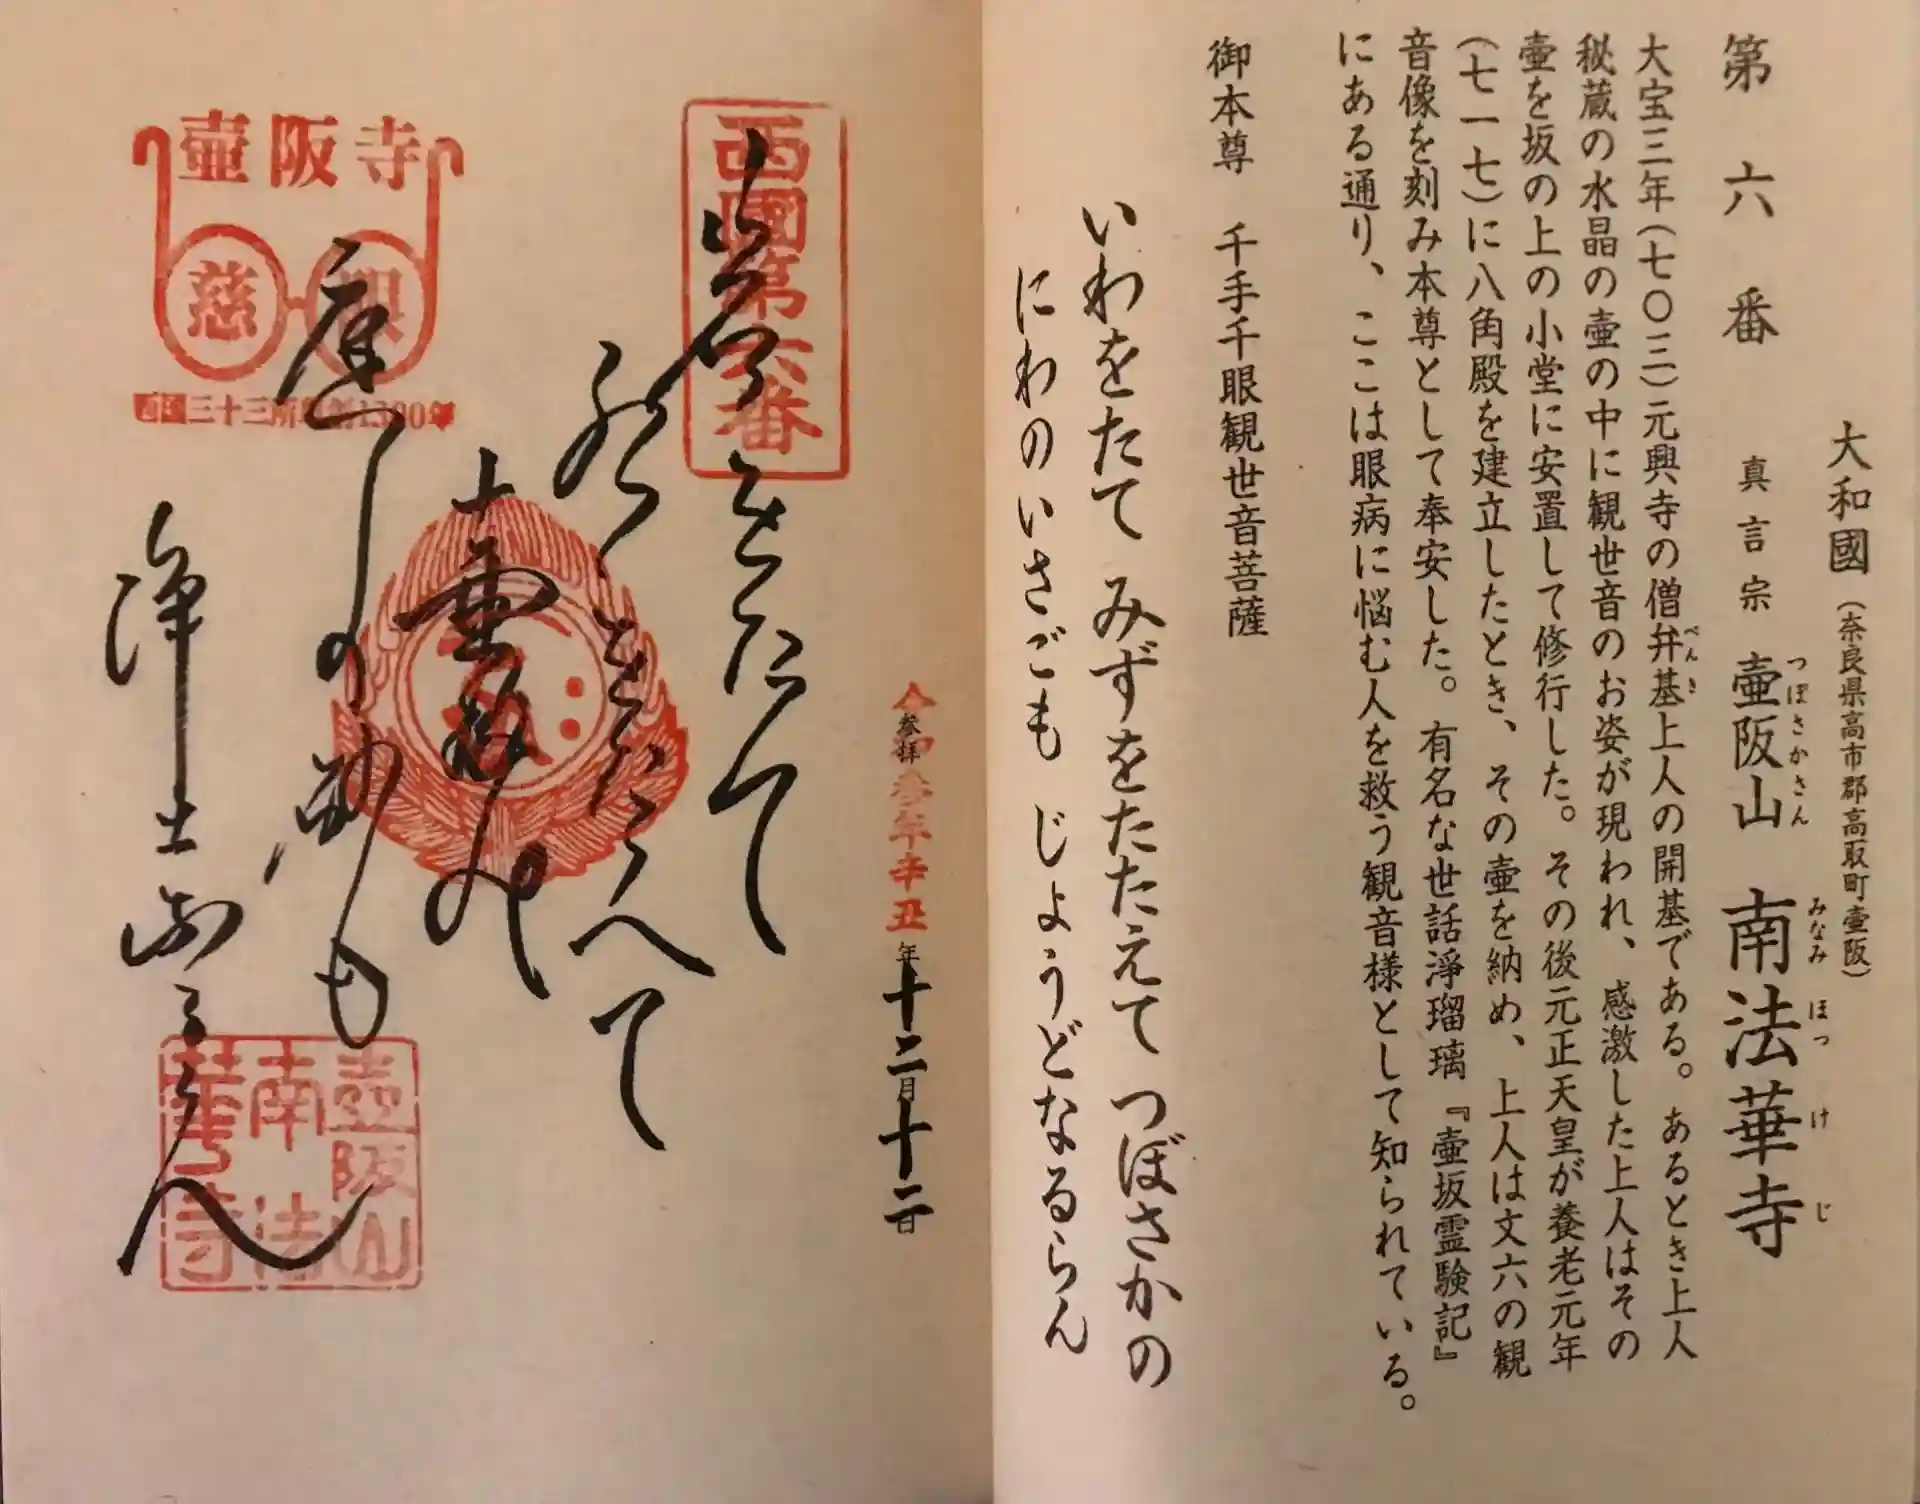 第六番
大和國(奈良県高市郡高取町壷阪)
真言宗 壷阪山 南法華寺
つぼさかさん みなみほっけじ
大宝三年(七〇三)元興寺の僧弁基上人の開基である。あるとき上人
べんき
秘蔵の水晶の壷の中に観世音のお姿が現われ、感激した上人はその
壷を坂の上の小堂に安置して修行した。その後元正天皇が養老元年
(七一七)に八角殿を建立したとき、その壷を納め、上人は文六の観
音像を刻み本尊として奉安した。有名な世話淨瑠璃『壷坂霊験記』
にある通り、ここは眼病に悩む人を救う観音様として知られている。
御本尊 千手千眼観世音菩薩
いわをたて みずをたたえて つぼさかの
にわのいさごも じょうどなるらん
令和参年辛丑年十二月十二日
参拝
西國第六番
岩をたて
水をたたへて
壷阪の
庭の砂も
浄土なるらん
壷阪寺
慈
西国三十三所草創1300年
壷阪山
南法
華寺